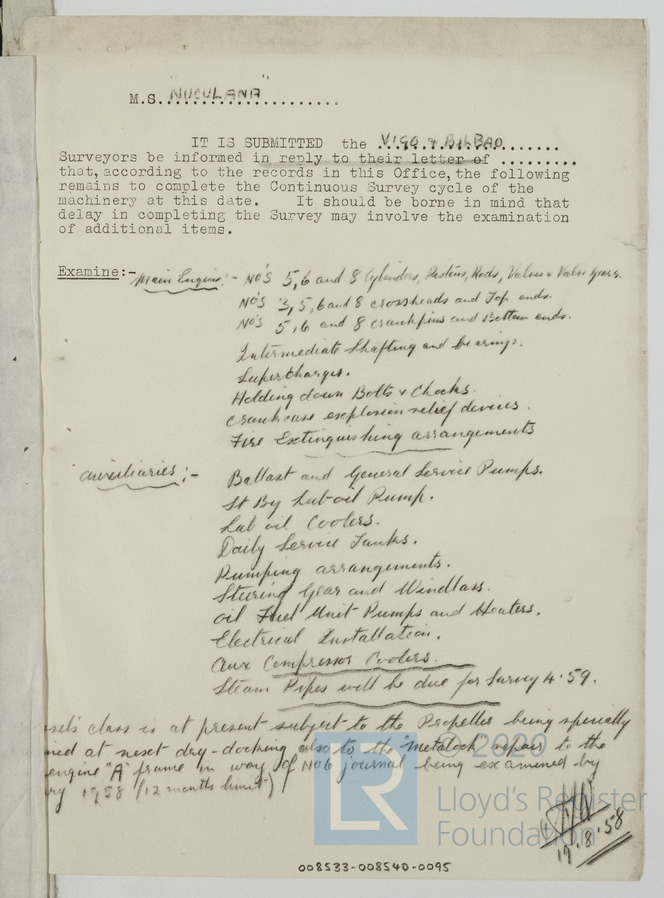 " "
M.S. NUCULANA
IT IS SUBMITTED the VIGO & BILBAO
Surveyors be informed in reply to their letter of ..........
that, according to the records in this Office, the following
remains to complete the Continuous Survey cycle of the
machinery at this date. It should be borne in mind that
delay in completing the Survey may involve the examination
of additional items.
Examine:- Main Engine:- NO'S 5,6 and 8 Cylinders, Pistons, Rods, Valves & Valve Gears.
NO'S 3,5,6 and 8 crossheads and Top ends.
NO'S 5,6 and 8 crankpins and Bottom ends.
Intermediate Shafting and bearings.
Superchargers.
Holding down Bolts & Chocks.
Crankcase explosion relief devices.
Fire Extinguishing arrangements
Auxiliaries:- Ballast and General Service Pumps.
St By Lub oil Pump.
Lub oil Coolers.
Daily Service Tanks.
Pumping arrangements.
Steering Gear and Windlass.
Oil Fuel Unit Pumps and Heaters.
Electrical Installation.
Aux Compressor Coolers.
Steam Pipes will be due for Survey 4.59.
ssel's class is at present subject to the Propeller being specially
ned at next dry-docking also to the "Metalock" repair to the
engine "A" frame in way of No 6 journal being examined by
ry 1958 (12 months limit)
© 2020
LR
Lloyd's Register
Foundation
19.8.58
008533-008540-0095